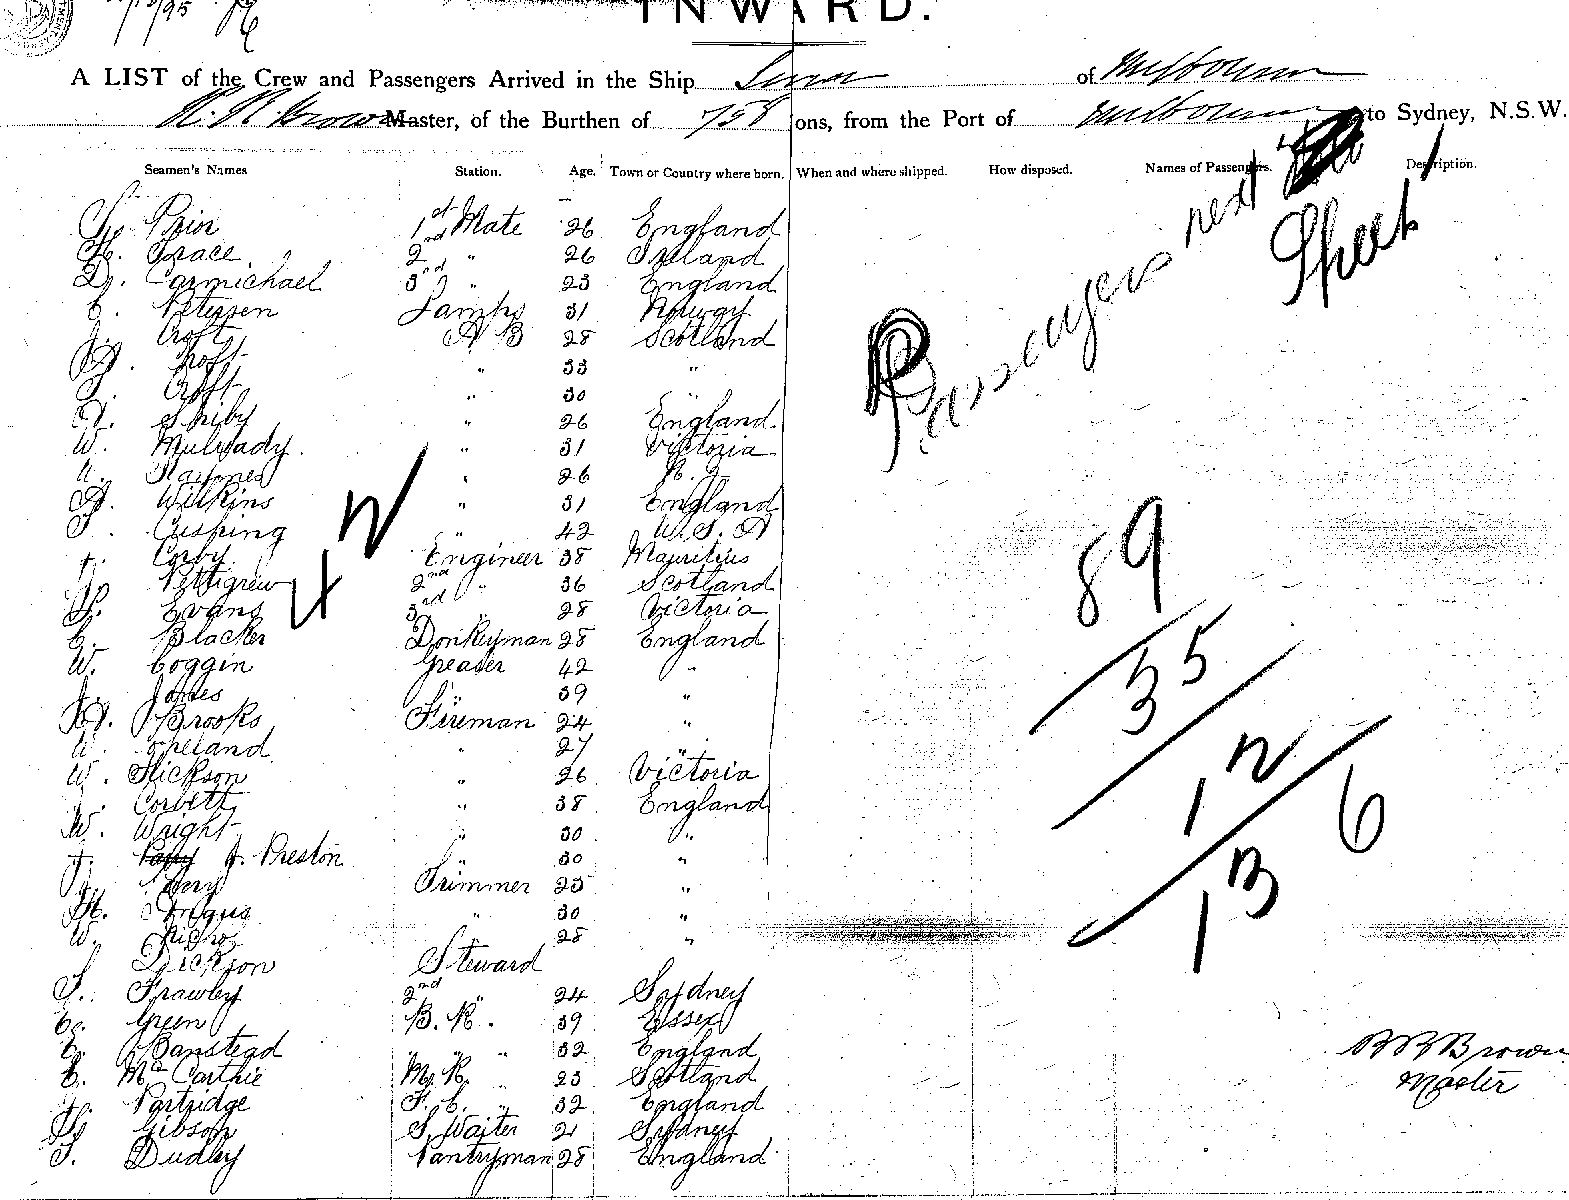 INWARD.
A LIST of the Crew and Passengers Arrived in the Ship of Melbourne
Brown Master, of the Burthen of 758 ons, from the Port of Melbourne to Sydney, N.S.W.
Seamen's Names Station. Age. Town or Country where born. When and where shipped. How disposed. Names of Passengers. Description.
Prior 1st Mate 26 England
Grace 2nd " 26 Ireland
D. Carmichael 3rd " 23 England
C. Petersen Lamps 31 Norway
Croft A B 28 Scotland
Croft " 33 "
Croft " 30 "
Shiby " 26 England
W. Mulready " 31 Victoria
" 26
Wilkins " 31 England
Cushing " 42 U.S.A
Corby Engineer 38 Mauritius
Pettigrew 2nd " 36 Scotland
Evans 3rd " 28 Victoria
Blacker Donkeyman 28 England
W. Coggin Greaser 42 "
J. Jones " 39 "
Brooks Fireman 24 "
W. Copeland " 27 "
W. Hickson " 26 Victoria
Corbett " 38 England
W. Wright " 30 "
J. Preston " 30 "
Trimmer 25 "
Angus " 30 "
W. " 28 "
Dickson Steward
Frawley 2nd " 24 Sydney
Green B. R. 39 Essex
E. Banstead " " " 32 England
E. McCarthie M. R. " 23 Scotland
Partridge F. C. " 32 England
Gibson S. Waiter 21 Sydney
Dudley Pantryman 28 England
Passengers next
Sheet
89
35
12
6
13
Brown
Master